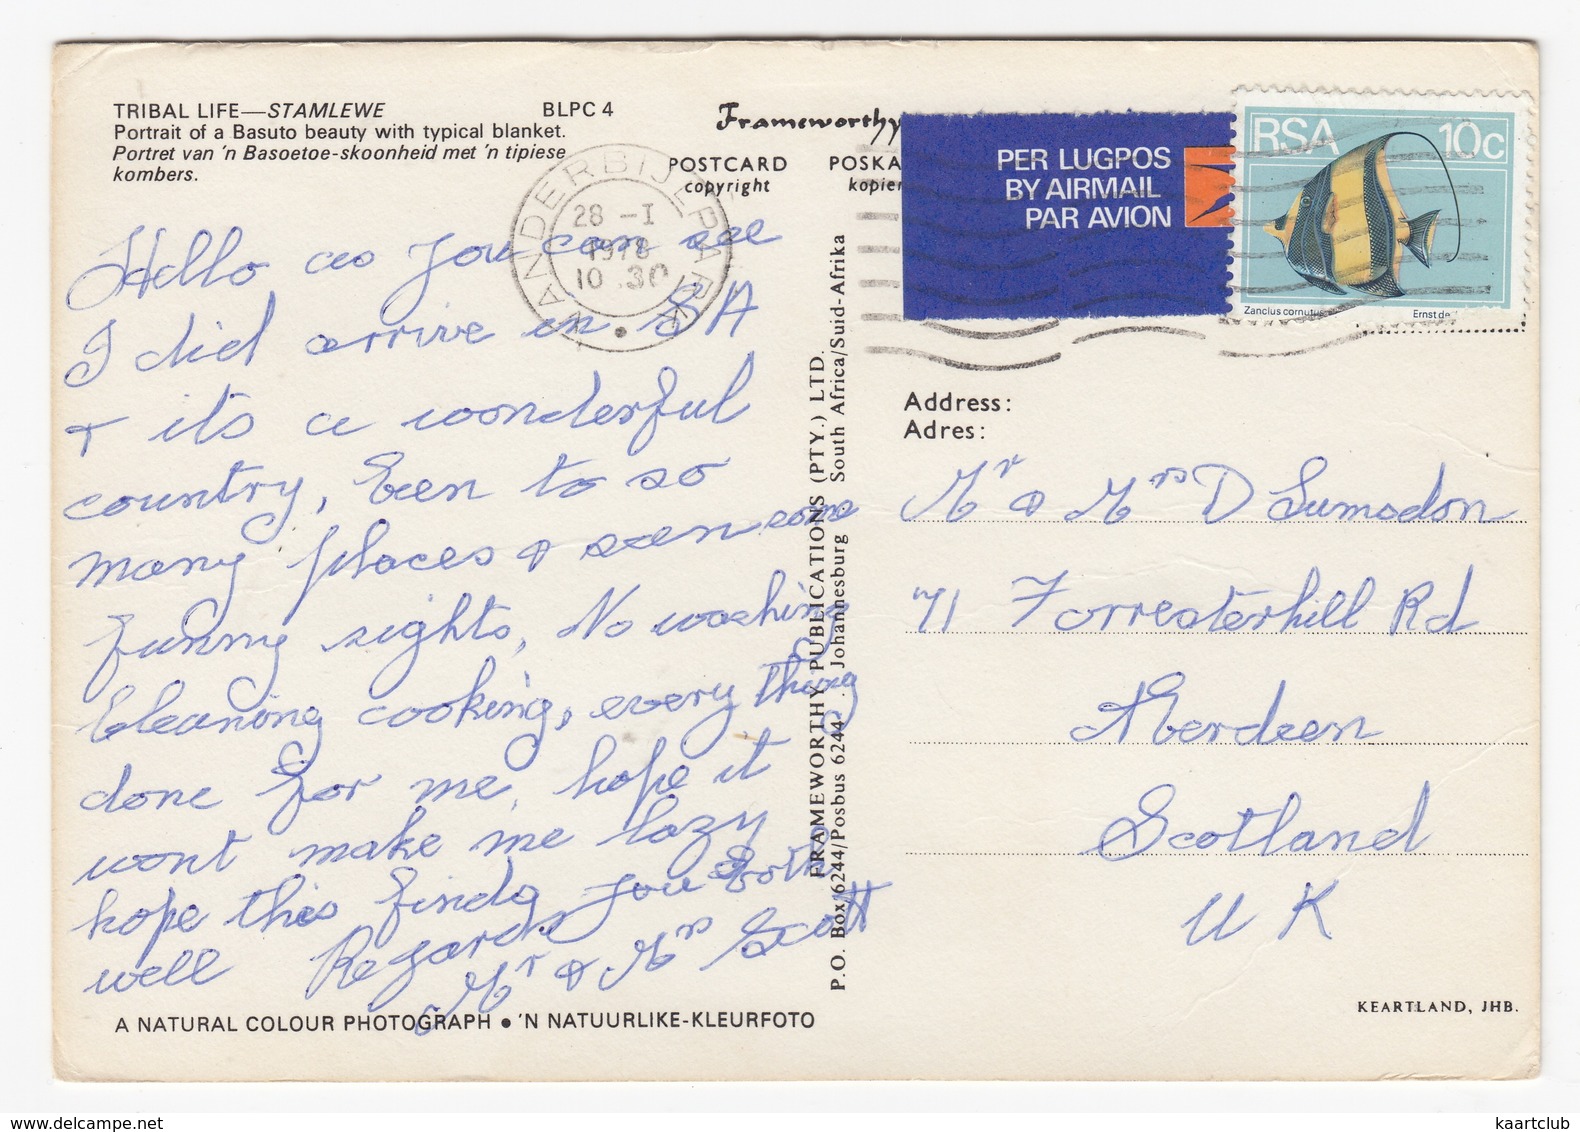 TRIBAL LIFE—STAMLEWE BLPC 4
Portrait of a Basuto beauty with typical blanket.
Portret van 'n Basoetoe-skoonheid met 'n tipiese
kombers.
Frameworthy
POSTCARD POSKA
copyright kopier
PER LUGPOS
BY AIRMAIL
PAR AVION
RSA 10c
Zanclus cornutus
Ernst de
VANDERBIJLPARK
28 –I
1978
10.30
Hello as you can see
I did arrive in SA
+ its a wonderful
country, Been to so
many places + seen some
funny sights, No washing
Cleaning cooking, every thing
done for me, hope it
wont make me lazy
hope this finds you Both
well Regards
Mr & Mrs Scott
A NATURAL COLOUR PHOTOGRAPH ● 'N NATUURLIKE-KLEURFOTO
FRAMEWORTHY PUBLICATIONS (PTY.) LTD.
P.O. Box 6244/Posbus 6244 . Johannesburg . South Africa/Suid-Afrika
Address:
Adres:
Mr & Mrs D Lumsdon
71 Forresterhill Rd
Aberdeen
Scotland
U K
KEARTLAND, JHB.
kaartclub